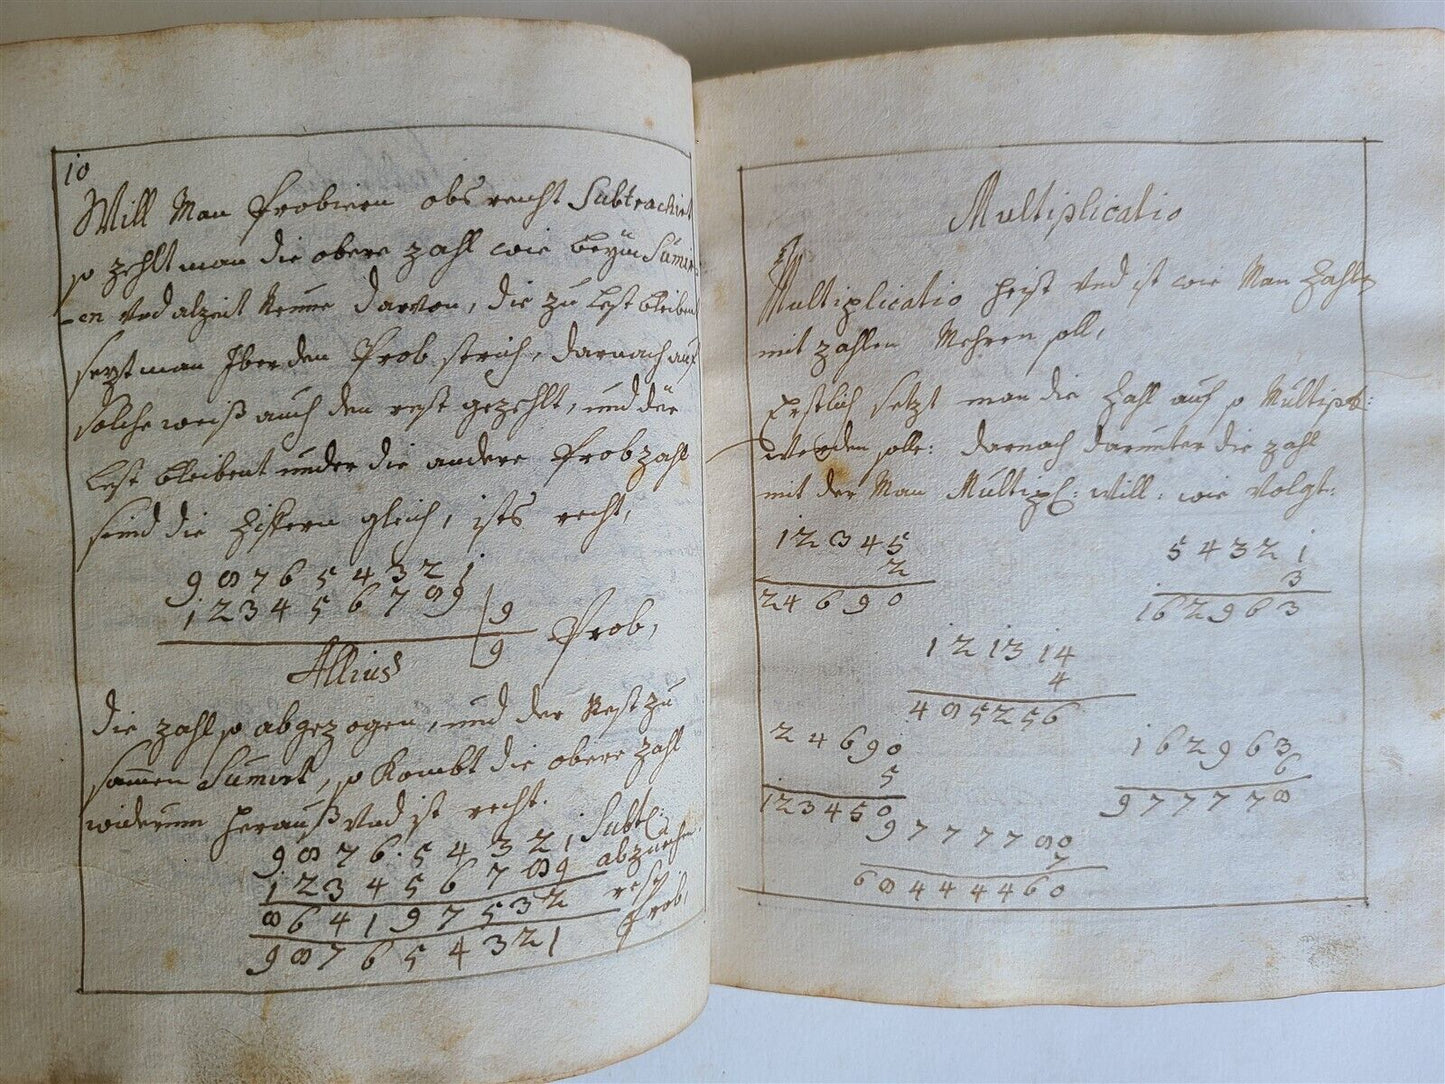 10
Will Man Probieren obs recht Subtrachirt
so zehlt man die obere zahl wie beÿm Sumir
-en Vnd alzeit Neune darvon, die zu lest bleibent
sezt man Jber den Prob strich, darnach auf
solche weiß auch den rest gezehlt, und die
lest bleibent under die andere Probzahl
seind die Zifern gleich, ists recht,
987654321
123456789
9
9
Prob,
Allius
die zahl so abgezogen, und der Rest zu
samen Sumirt, so Kombt die obere zahl
widerumb herauß Vnd ist recht.
987654321 Subt:
123456789 abzuziehen
864197532 rest
987654321 Prob,
Multiplicatio
Multiplicatio heist Vnd ist wie Man Zahlen
mit zahlen Mehren soll,
Erstlich setzt man die Zahl auf so Multipl:
werden solle: darnach darunter die zahl
mit der Man Multipl: will: wie Volgt:
12345
2
24690
54321
3
162963
121314
4
485256
24690
5
123450
162963
6
977778
9777780
7
68444460